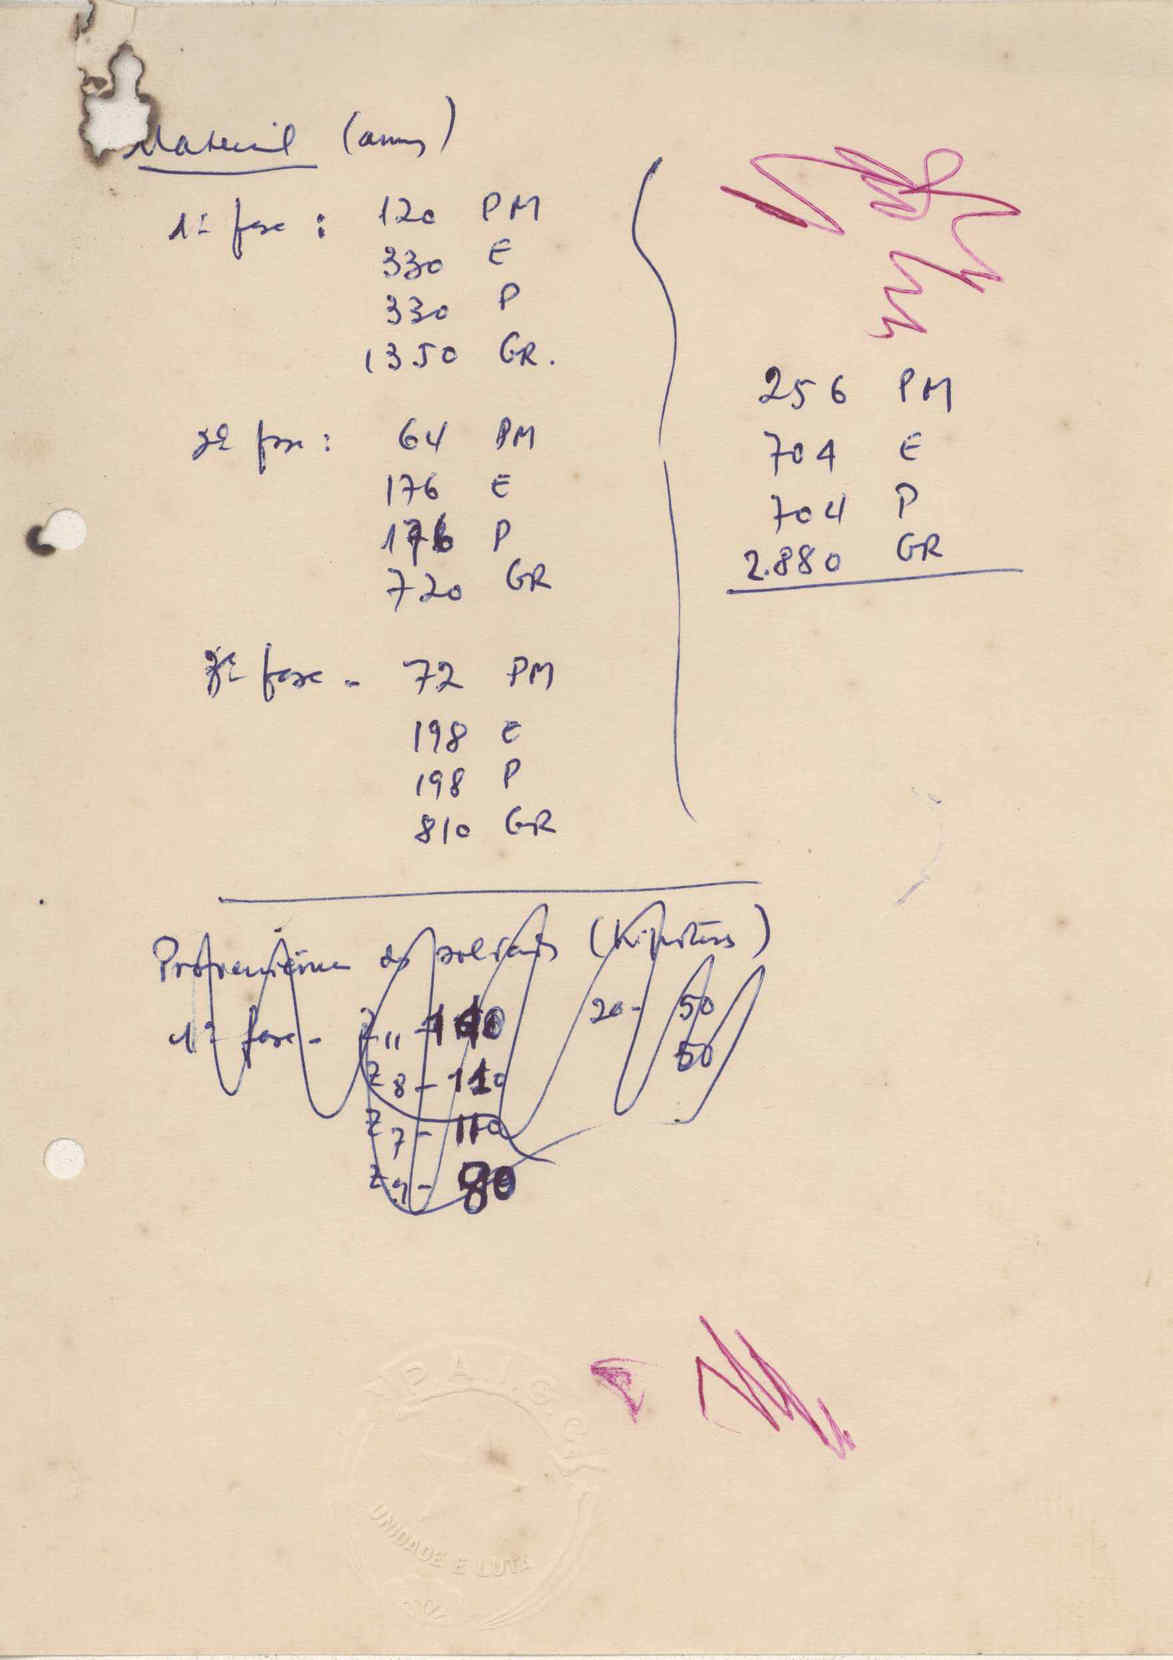 Material (armas)
1ª fase : 120 PM
330 E
330 P
1350 GR.
2ª fase : 64 PM
176 E
176 P
720 GR
3ª fase - 72 PM
198 E
198 P
810 GR
256 PM
704 E
704 P
2.880 GR
1ª fase - Z11 - 140 20 - 50
Z8 - 110 50
Z7 - 110
80
P.A.I.G.C.
UNIDADE E LUTA